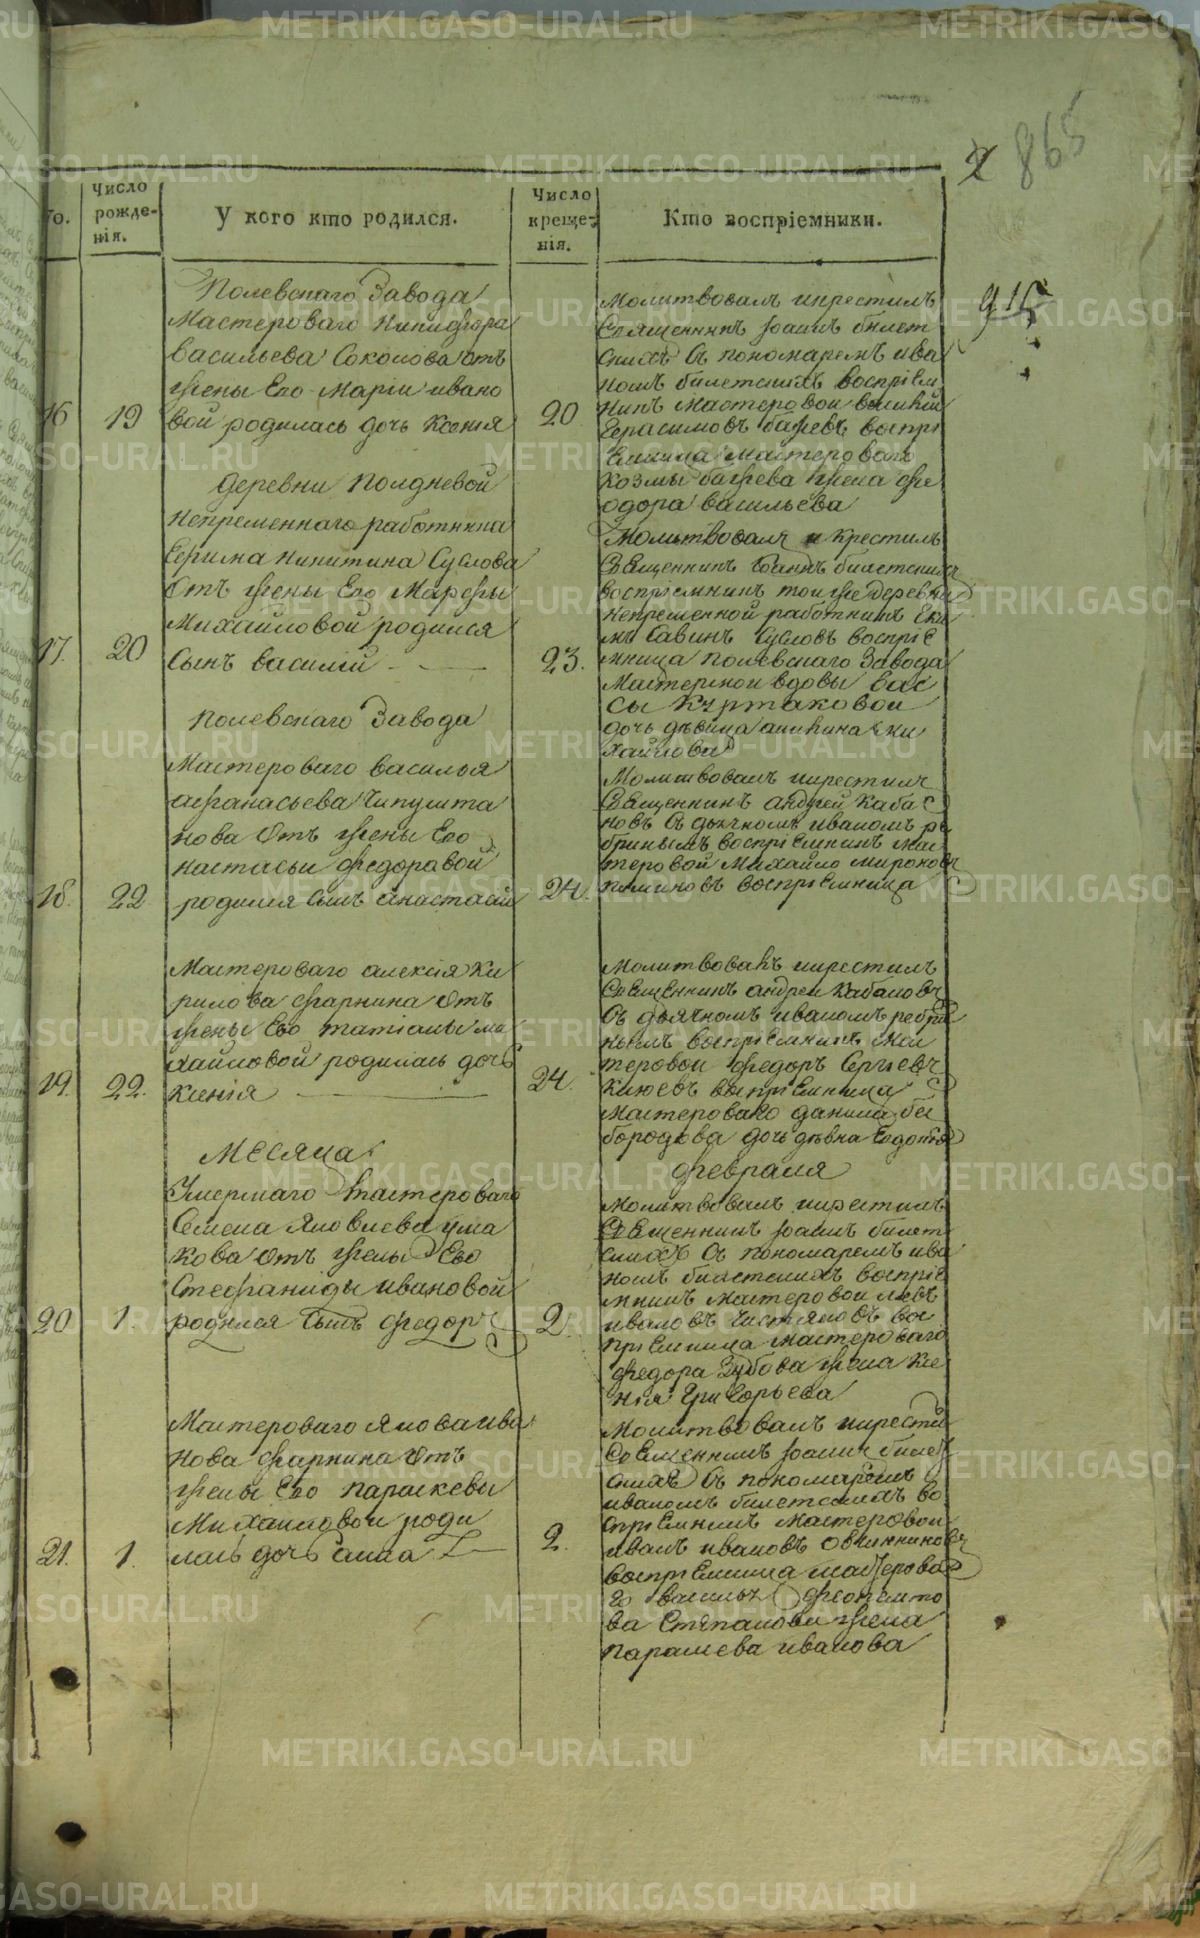 865
915
го.
Число рожденія.
У кого кто родился.
Число крещенія.
Кто воспріемники.
Полевскаго Завода
Мастероваго Никифора
Васильева Соколова отъ
жены Его Маріи ивано
вой родилась дочь Ксенія
16
19
20
Молитвовалъ икрестилъ
Священникъ Іоаннъ билет
скихъ Съ пономаремъ ива
номъ билетскихъ воспріем
никъ Мастеровои
Герасимовъ бажевъ воспрі
Емница Мастероваго
Козмы бажева жена фе
одора васильева
деревни полдневой
непременнаго работника
Никитина Суслова
Отъ жены Его Марфы
Михайловой родился
Сынъ василій
17.
20
23.
Молитвовалъ и крестилъ
Священникъ Іоаннъ билетскихъ
воспріемникъ тоиже деревни
непременной работникъ Еки
мъ Савинъ Сусловъ воспріе
мница полевскаго Завода
Мастерской вдовы вас
сы Куртаковои
дочь девица акилина ми
хайлова
полевскаго Завода
Мастероваго василья
афанасьева Чипушта
нова Отъ жены Его
настасьи федоравой
родился Сынъ анастасій
18.
22
24.
Молитвовалъ икрестилъ
Священникъ андрей Кабак
новъ Съ дьячкомъ иваномъ ре
бринымъ воспріемникъ мас
теровой Михайло мироновъ
воспріемница
Мастероваго алексія Ки
рилова фарнина Отъ
жены Его татіаны ми
хайловой родилась дочь
Ксенія
19.
22.
24.
Молитвовалъ икрестилъ
Священникъ андреи Кабаковъ
Съ дьячкомъ иваномъ ребри
нымъ воспріемникъ Мас
теровои федоръ Сергіевъ
Клюевъ воспріемница
Мастероваго данила бес
бородова дочь девка Евдокія
Месяца
февраля
Умершаго Мастероваго
Семена Яковлева уша
кова Отъ жены Его
Стефаниды ивановой
родился Сынъ федоръ
20
1.
2.
Молитвовалъ икрестилъ
Священникъ Іоаннъ билет
скихъ Съ пономаремъ ива
номъ билетскихъ воспріе
мникъ Мастеровои
ивановъ чистяковъ вос
пріемница Мастероваго
федора Зубова жена Ксе
нія Григорьева
Мастероваго Якова ива
нова фарнина Отъ
жены Его параскевы
Михаиловои роди
лась дочь анна
21.
1.
2.
Молитвовалъ икрести
Священникъ Іоаннъ билет
скихъ Съ пономаремъ
иваномъ билетскихъ во
спріемникъ Мастеровои
иванъ ивановъ овчинниковъ
воспріемница мастеровa
го василья феопемпто
ва Степановы жена
параскева иванова
METRIKI.GASO-URAL.RU